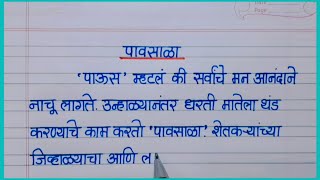 पावसाळा
'पाऊस' म्हटलं की सर्वांचे मन आनंदाने
नाचू लागते. उन्हाळ्यानंतर धरती मातेला थंड
करण्याचे काम करतो 'पावसाळा'. शेतकऱ्यांच्या
जिव्हाळ्याचा आणि ल